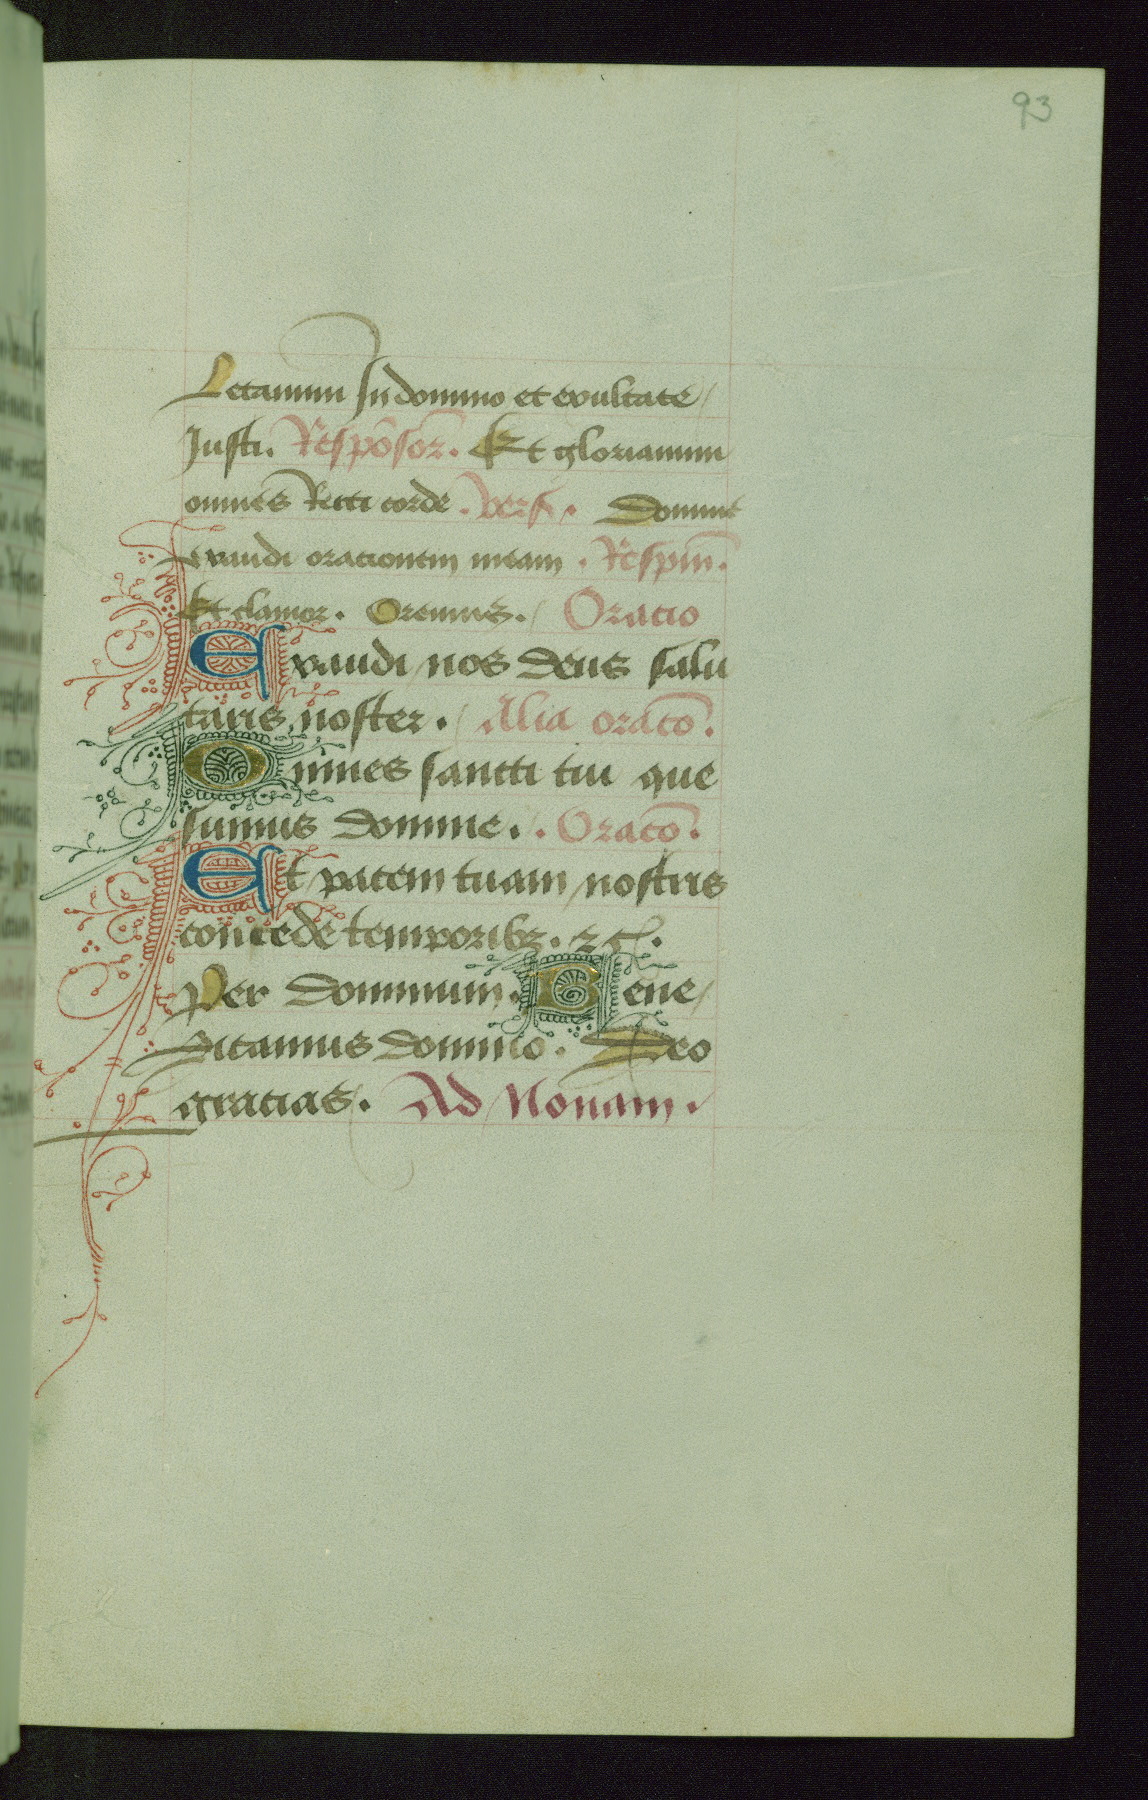 93
Letamini In domino et exultate
Iusti. Respõsor̃. Et gloriamini
omnes Recti corde. Vers. Domine
exaudi orationem meam. Respiñ.
Et clamor. Oremus. Oracio
Exaudi nos deus salu
taris noster. Alia oracõ.
Omnes sancti tui que
sumus domine. Oracõ.
Et pacem tuam nostris
concede temporibꝫ. ⁊ cͣ.
Per dominum. Bene
dicamus domino. Deo
gracias. Ad Nonam.